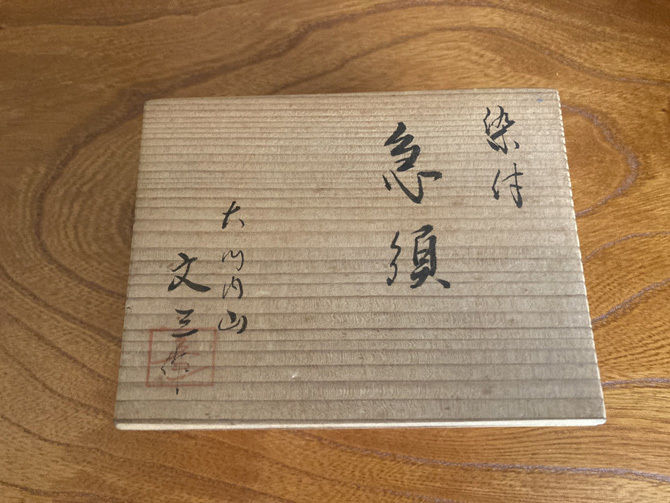 染付
急須
大川内山
文三作